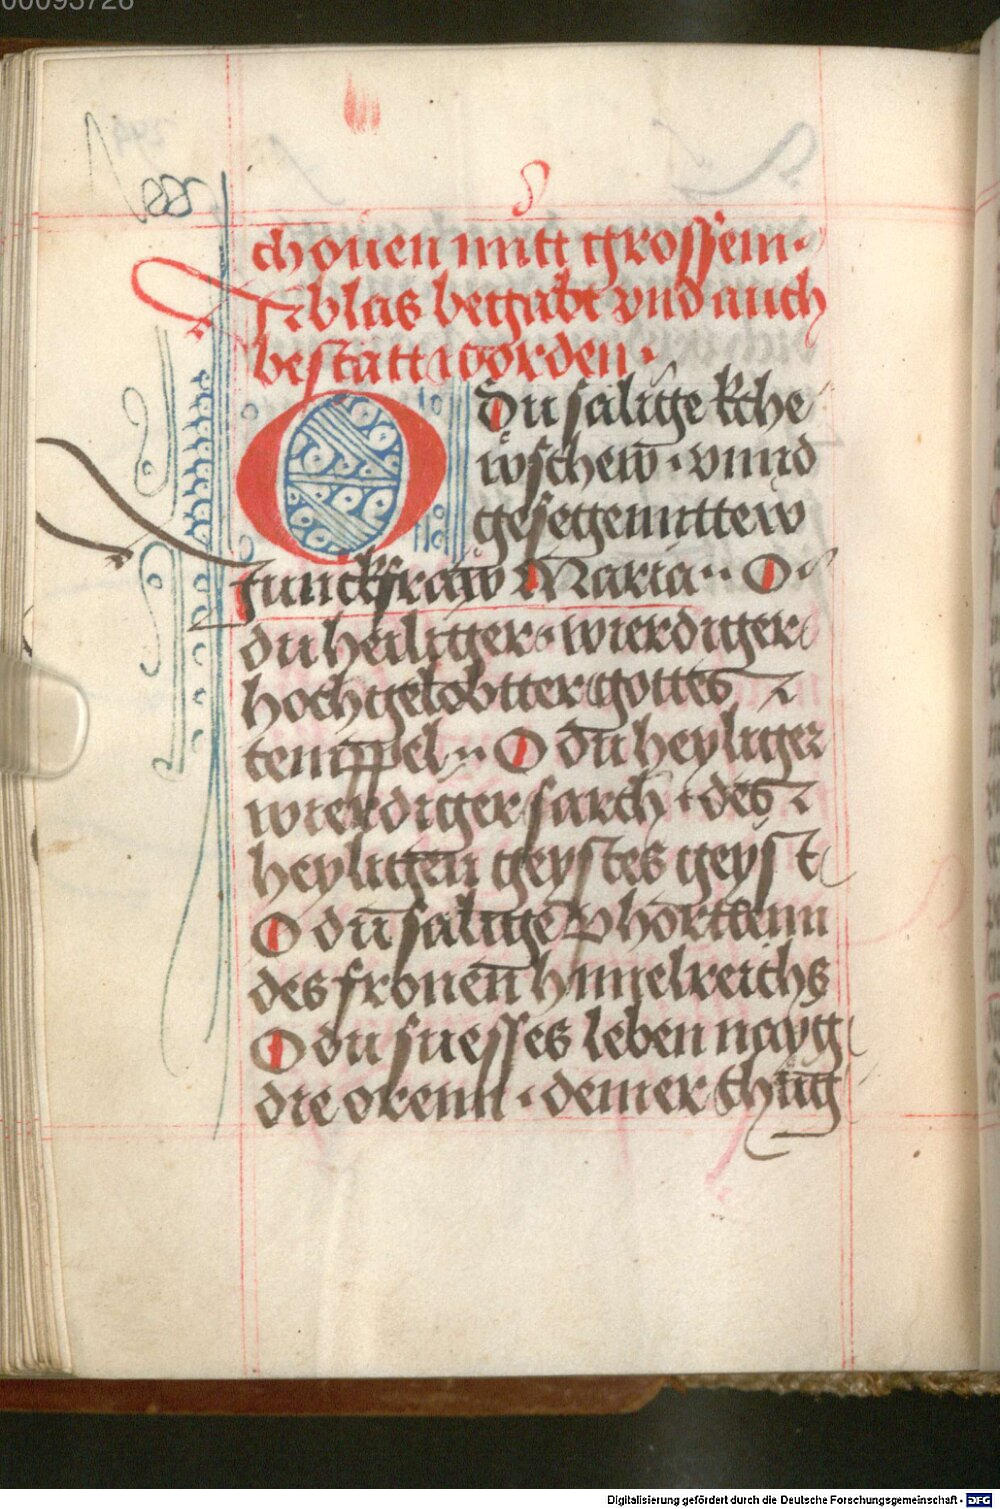 00093728
chouen mitt grossem·
Ablas begabt vnd auch
bestätt worden·
O du sälige kche
wschew̄ · vnnd
gesegennttew
Junckfraw Maria·· O
du heiliger· wierdiger
hochgelobtter gottes
temppel·· O du heyliger
wierdiger sarch · des
heyligen geystes geyst
O dū sälige
des fronen̄ himelreichs
O du suesses leben nayg
die orenn · deiner
Digitalisierung gefördert durch die Deutsche Forschungsgemeinschaft - DFG